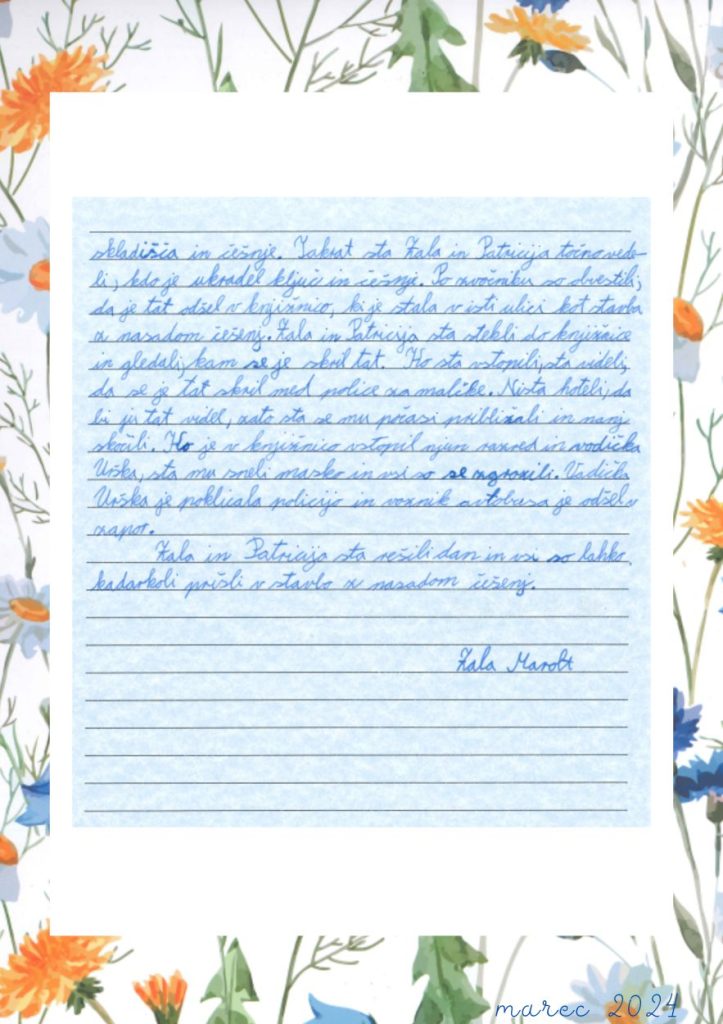 skladišča in češnje. Takrat sta Zala in Patricija točno vede-
li, kdo je ukradel ključ in češnje. Po zvočniku so obvestili,
da je tat odšel v knjižnico, ki je stala v isti ulici kot stavba
z nasadom češenj. Zala in Patricija sta stekli do knjižnice
in gledali, kam se je skril tat. Ko sta vstopili, sta videli,
da se je tat skril med police za malčke. Nista hoteli, da
bi ju tat videl, zato sta se mu počasi približali in nanj
skočili. Ko je v knjižnico vstopil njun razred in vodička
Urška, sta mu sneli masko in vsi so se zgrozili. Vodička
Urška je poklicala policijo in voznik avtobusa je odšel v
zapor.
Zala in Patricija sta rešili dan in vsi so lahko,
kadarkoli prišli v stavbo z nasadom češenj.
Zala Marolt
marec 2024